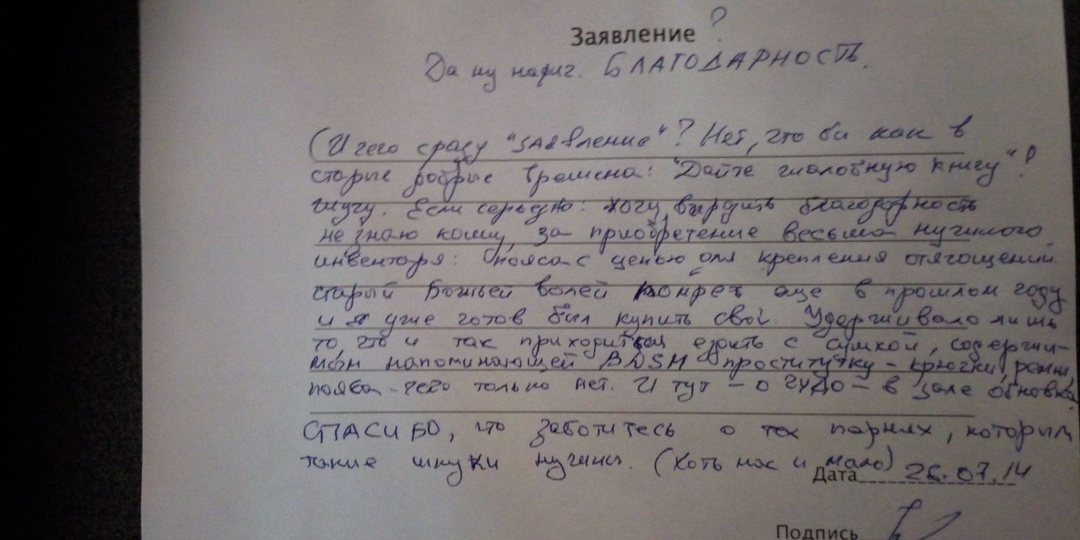 Заявление ?
Да ну нафиг. БЛАГОДАРНОСТЬ.
(И чего сразу "заявление"? Нет, что бы как в
старые добрые времена: "Дайте жалобную книгу"!
шучу. Если серьезно: хочу выразить благодарность
не знаю кому, за приобретение весьма нужного
инвентаря: пояса с цепью для крепления отягощений.
старый Божьей волей помре еще в прошлом году
и я уже готов был купить свой. Удерживало лишь
то, что и так приходиться ездить с сумкой, содержи-
мым напоминающей BDSM проститутку - крючки, ремни,
пояса - чего только нет. И тут - о ЧУДО - в зале обновка.
СПАСИБО, что заботитесь о тех парнях, которым
такие штуки нужны. (Хоть нас и мало)
Дата 26.07.14
Подпись